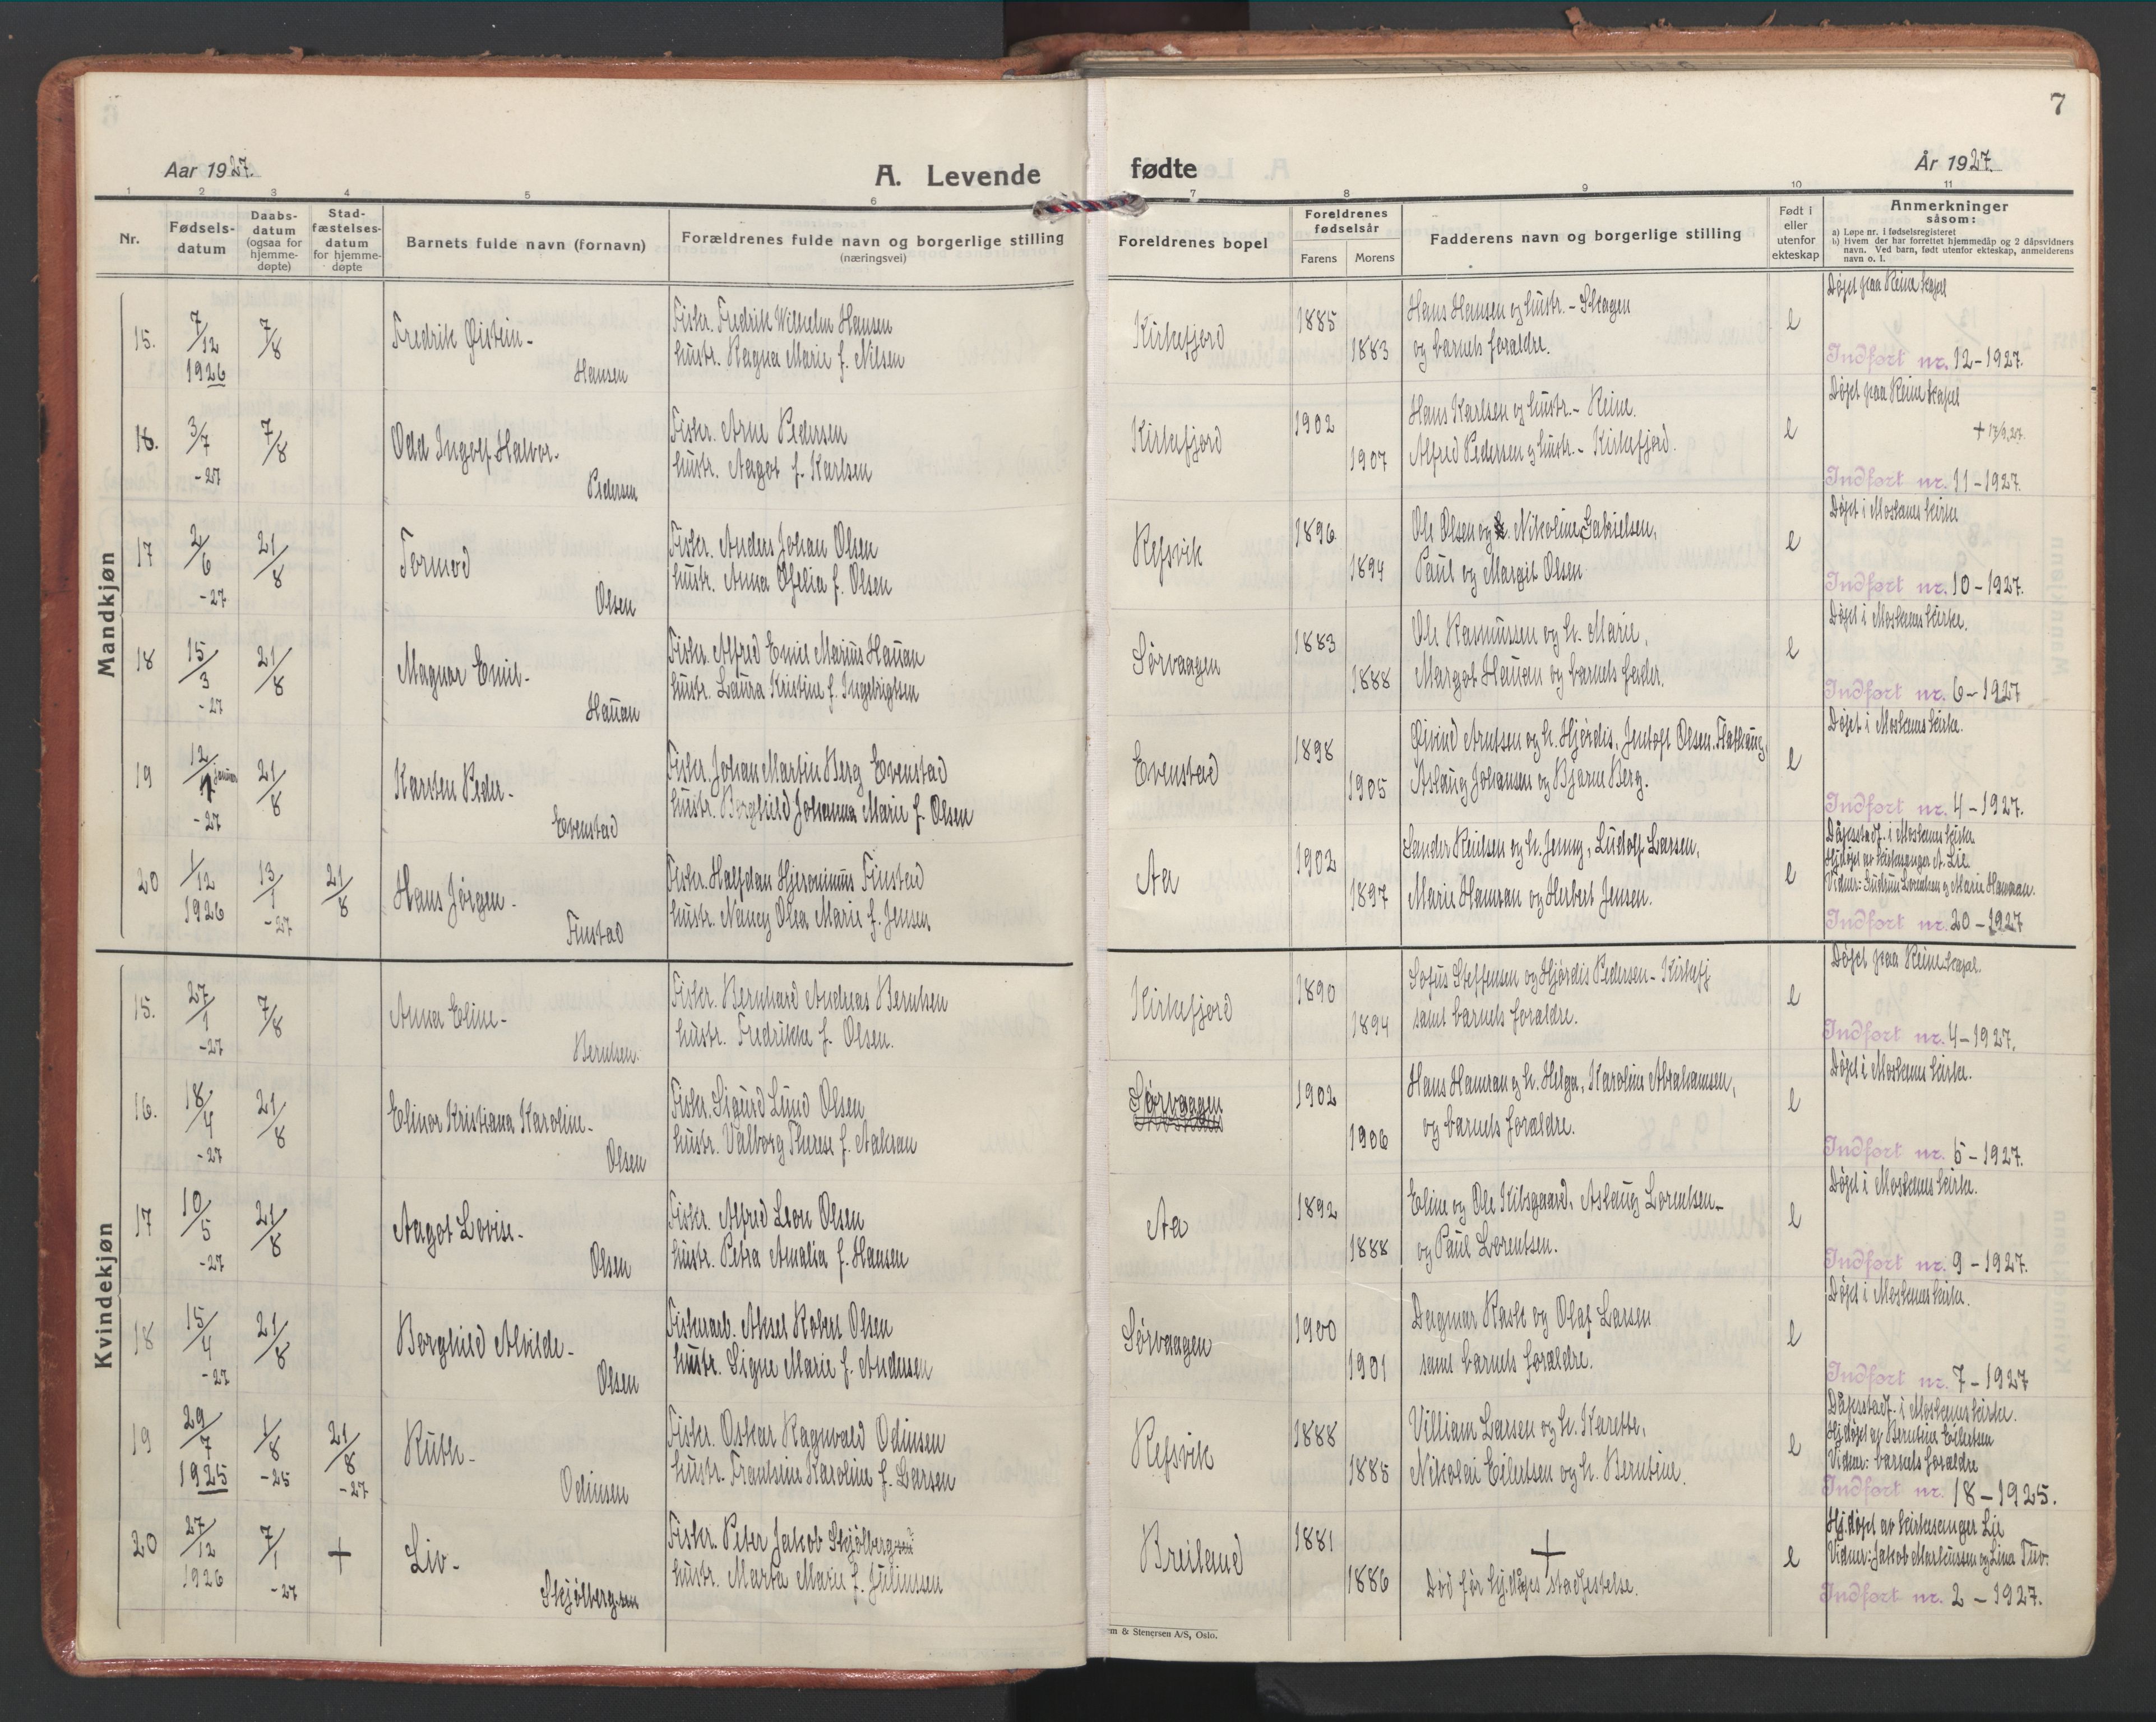 7
Aar 1927. A. Levende fødte År 1927.
1 2 3 4 5 6 7 8 9 10 11
Nr.
Fødsels-
datum
Daabs-
datum
(ogsaa for
hjemme-
døpte)
Stad-
fæstelses-
datum
for hjemme-
døpte
Barnets fulde navn (fornavn)
Forældrenes fulde navn og borgerlige stilling
(næringsvei)
Foreldrenes bopel
Foreldrenes
fødselsår
Farens Morens
Fadderens navn og borgerlige stilling
Født i
eller
utenfor
ekteskap
Anmerkninger
såsom:
a) Løpe nr. i fødselsregisteret
b) Hvem der har forrettet hjemmedåp og 2 dåpsvidners
navn. Ved barn, født utenfor ekteskap, anmelderens
navn o. l.
Mandkjøn
15. 7/12 1926 7/8
Fredrik Øistein-
Hansen
Fisker. Fredrik Wilhelm Hansen
hustr. Ragna Marie f. Nilsen
Kirkefjord
1885
1883
Hans Hansen og hustr. - Skagen
og barnets forældre.
e
Døpt paa Reine kapel
Indført nr. 12-1927.
18. 3/7 -27 7/8
Odd Ingolf Halvor-
Pedersen
Fisker. Arne Pedersen
hustr. Aagot f. Karlsen
Kirkefjord
1902
1907
Hans Karlsen og hustr. - Reine.
Alfred Pedersen og hustr. - Kirkefjord.
e
Døpt paa Reine kapel
+ 17/9.27.
Indført nr. 11-1927.
17 2/6 -27 21/8
Tormod
Olsen
Fisker. Anders Johan Olsen
hustr. Anna Ofelia f. Olsen
Refsvik
1896
1894
Ole Olsen og Nikoline Gabrielsen,
Paul og Margit Olsen
e
Døpt i Moskenes kirke
Indført nr. 10-1927.
18 15/3 -27 21/8
Magnor Emil-
Hauan
Fisker. Alfred Emil Marius Hauan
hustr. Laura Kristine f. Ingebrigtsen
Sørvaagen
1883
1888
Ole Rasmussen og h. Marie,
Margot Hauan og barnets fader.
e
Døpt i Moskenes kirke.
Indført nr. 6-1927
19 12/1 januar -27 21/8
Karsten Peder-
Evenstad
Fisker. Johan Martin Berg Evenstad
hustr. Borghild Johanna Marie f. Olsen
Evenstad
1898
1905
Øivind Arntsen og h. Hjørdis, Jentoft Olsen.
Aslaug Johansen og Bjarne Berg.
e
Døpt i Moskenes kirke.
Indført nr. 4-1927.
20 1/12 1926 13/1 -27 21/8
Hans Jørgen-
Finstad
Fisker. Halfdan Hjeronimus Finstad
hustr. Nancy Olea Marie f. Jensen
Aa
1902
1897
Sander Reilsen og h. Jenny, Ludolf Larsen,
Marie Hamran og Herbert Jensen.
e
Dåpsstadf. i Moskenes kirke
Hj.døpt av kirkesanger A. Lie
Vidner: Gudrun Lorentsen og Marie Hamran.
Indført nr. 20-1927
Kvindekjøn
15. 27/1 -27 7/8
Anna Eline-
Berntsen
Fisker. Bernhard Andreas Berntsen
hustr. Fredrikke f. Olsen.
Kirkefjord
1890
1894
Sofus Steffensen og Hjørdis Pedersen - Kirkefj
samt barnets forældre.
e
Døpt paa Reine kapel.
Indført nr. 4-1927.
16. 18/4 -27 21/8
Elinor Kristiana Karoline-
Olsen
Fisker. Sigurd Lund Olsen
hustr. Valborg Therese f. Aakran
Sørvaagen
1902
1906
Hans Hamran og h. Helga, Karoline Abrahamsen,
og barnets forældre.
e
Døpt i Moskenes kirke.
Indført nr. 5-1927.
17 10/5 -27 21/8
Aagot Lovise-
Olsen
Fisker. Alfred Leon Olsen
hustr. Petra Amalia f. Hansen
Aa
1892
1888
Eline og Ole Kibsgaard, Aslaug Lorentsen-
og Paul Lorentsen.
e
Døpt i Moskenes kirke.
Indført nr. 9-1927.
18 15/4 -27 21/8
Borghild Alvilde-
Olsen
Fiskerarb. Aksel Robert Olsen
hustr. Signe Marie f. Andersen
Sørvaagen
1900
1901
Dagmar Rasch og Olaf Larsen
samt barnets forældre.
e
Døpt i Moskenes kirke.
Indført nr. 7-1927
19 29/7 1925 1/8 -25 21/8 -27
Ruth-
Odinsen
Fisker. Oskar Ragnvald Odinsen
hustr. Frantsine Karoline f. Larsen
Refsvik
1888
1885
Villiam Larsen og h. Karette,
Nikolai Eilertsen og h. Berntine.
e
Dåpsstadf. i Moskenes kirke.
Hj.døpt af Berntine Eilertsen
Vidner: barnets forældre
Indført nr. 18-1925.
20 27/12 1926 7/1 -27 +
Liv-
Skjølbergsen
Fisker. Peter Jakob Skjølbergsen
hustr. Marta Marie f. Juliussen
Breiland
1881
1886
+
Død før hj.dåpens stadfestelse.
e
Hj.døpt av kirkesanger Lie
Vidner: Jakob Markussen og Lina Tuv.
Indført nr. 2-1927.
& Stenersen A/S, Oslo.